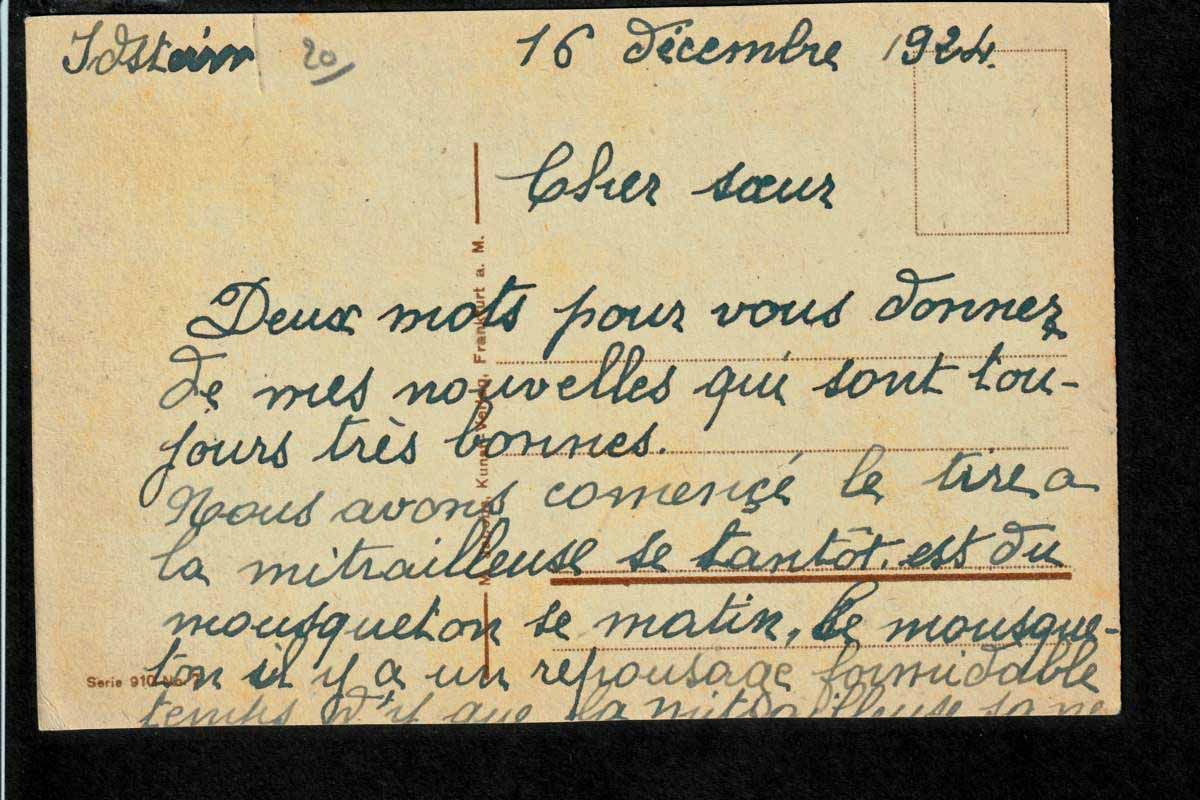 Idstein 20 16 décembre 1924.
Cher sœur
Deux mots pour vous donnez
de mes nouvelles qui sont tou-
jours très bonnes.
Nous avons començé le tire a
la mitrailleuse se tantôt. est du
mousqueton se matin, le mousque-
ton il y a un repousage formidable
temps d'y que la mitrailleuse sa ne
Kunst Verlag, Frankfurt a. M.
Serie 910 No